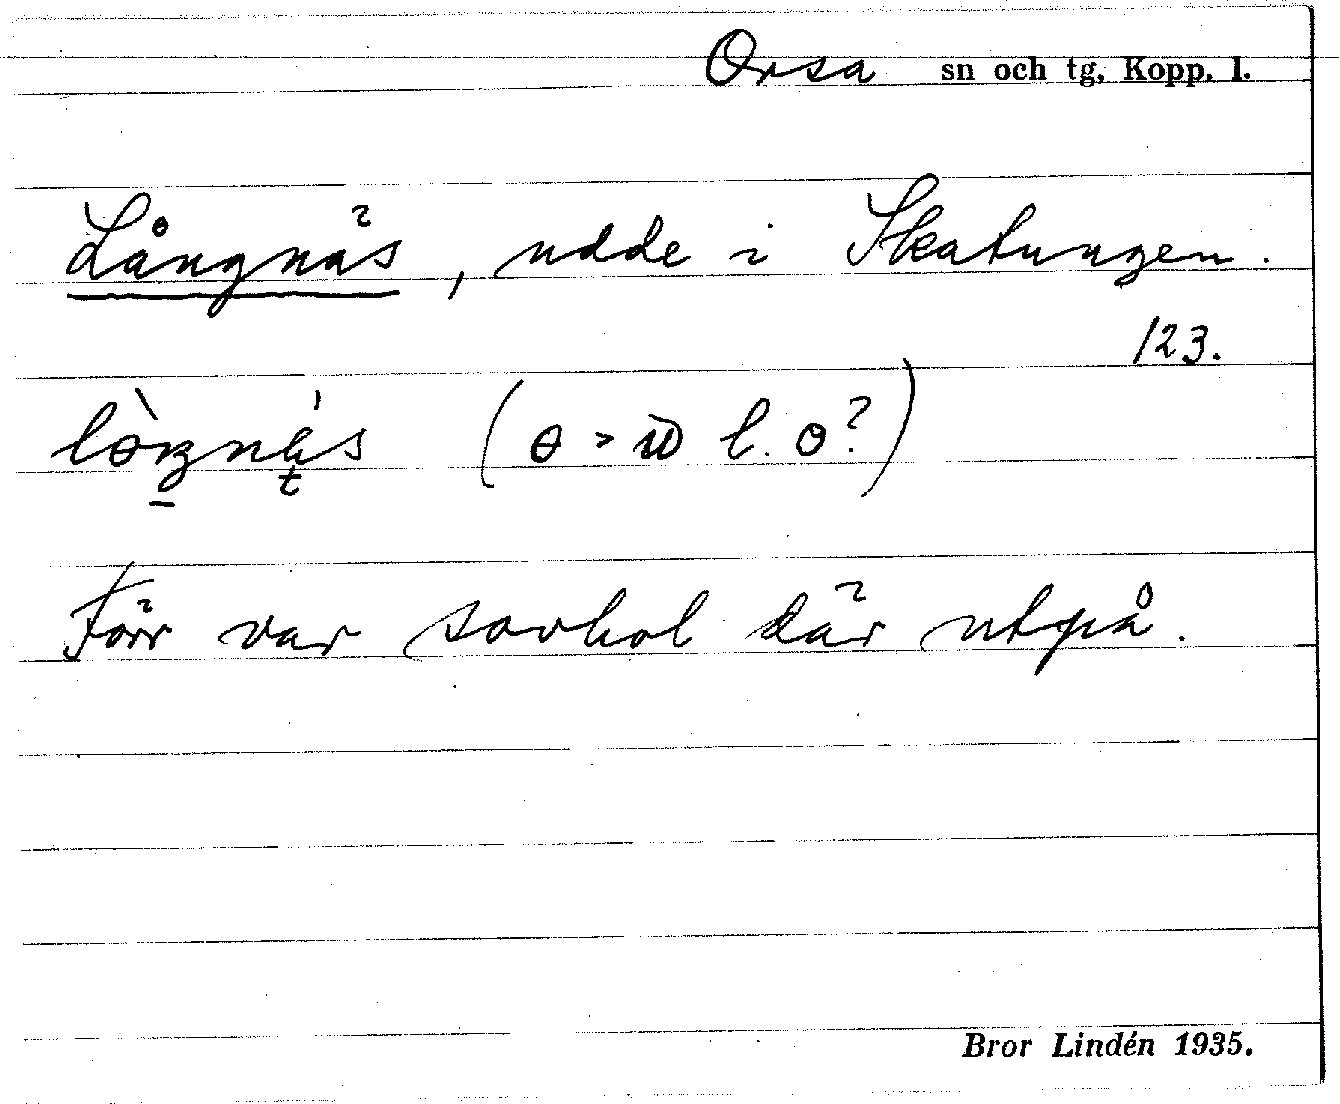 Orsa sn och tg, Kopp. l.
Långnäs, udde i Skatungen.
123.
( ɵ > ω l. o? )
Förr var sovhol där utpå.
Bror Lindén 1935.